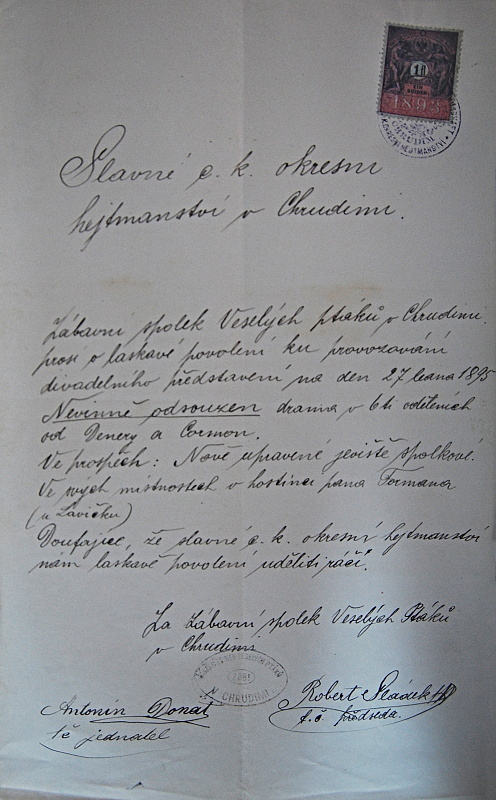 1 fl
EIN GULDEN
1893
CHRUDIM
Slavné c. k. okresní
hejtmanství v Chrudimi.
Zábavní spolek Veselých ptáků v Chrudimi
prosí o laskavé povolení ku provozování
divadelního představení na den 27 února 1895
Nevinně odsouzen drama v 6ti odděleních
od Denery a Cormon.
Ve prospěch: Nově upravené jeviště spolkové.
Ve svých místnostech v hostinci pana Formana
(u Lavičků)
Doufajíc, že slavné c. k. okresní hejtmanství
nám laskavě povolení uděliti ráčí.
Za Zábavní spolek Veselých Ptáků
v Chrudimi
V CHRUDIMI
Antonín Donát
t.č. jednatel
Robert Sládek
t.č. předseda.